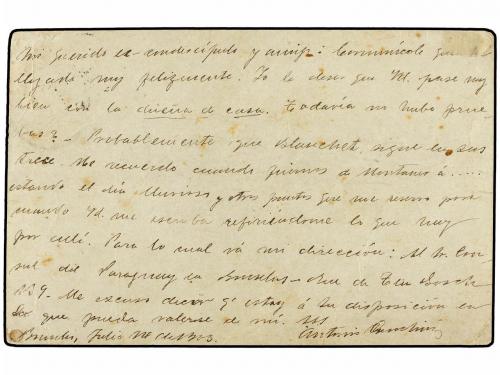 Mi querido ex-condiscípulo y amigo: Comunícole que he
llegado muy felizmente. Yo le deseo que Vd. pase muy
bien con la dueña de casa. Todavía no hubo prue-
bas? - Probablemente que Blanchet sigue en sus
trece. Me recuerdo cuando fuimos de Montano á .....
estando el día lluvioso y otros puntos que me reservo para
cuando Vd. me escriba refiriéndome lo que hay
por allí. Para lo cual vá mi dirección: Al Sr. Con
sul del Paraguay en Bruselas - Rue de
Me excuso decir qe estoy á su disposición en
lo que pueda valerse de mí.
Bruselas, Julio de 1903. Antonio